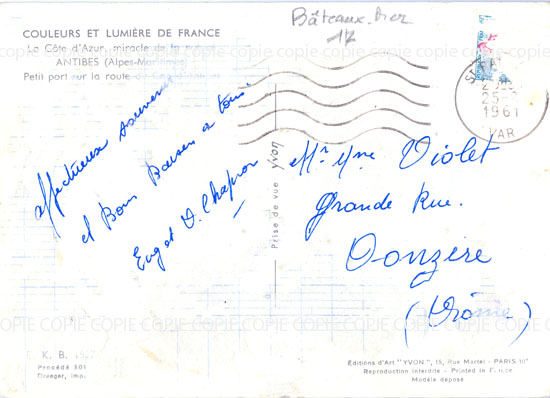 COULEURS ET LUMIÈRE DE FRANCE
La Côte d'Azur, miracle de la
ANTIBES (Alpes-
Petit port sur la route
Bâteaux. Mer
17
25-
1961
VAR
affectueux souvenir
et Bons Baisers a tous.
Eug et V. Chapron
Prise de vue yvon
Mr Mme Violet
Grande Rue.
Donzère
(Drôme)
K. B.
Procédé 301
Draeger, imp.
Éditions d'Art "YVON", 15, Rue Martel - PARIS 10e
Reproduction interdite - Printed in France
Modèle déposé
COPIE COPIE COPIE COPIE COPIE COPIE COPIE COPIE COPIE